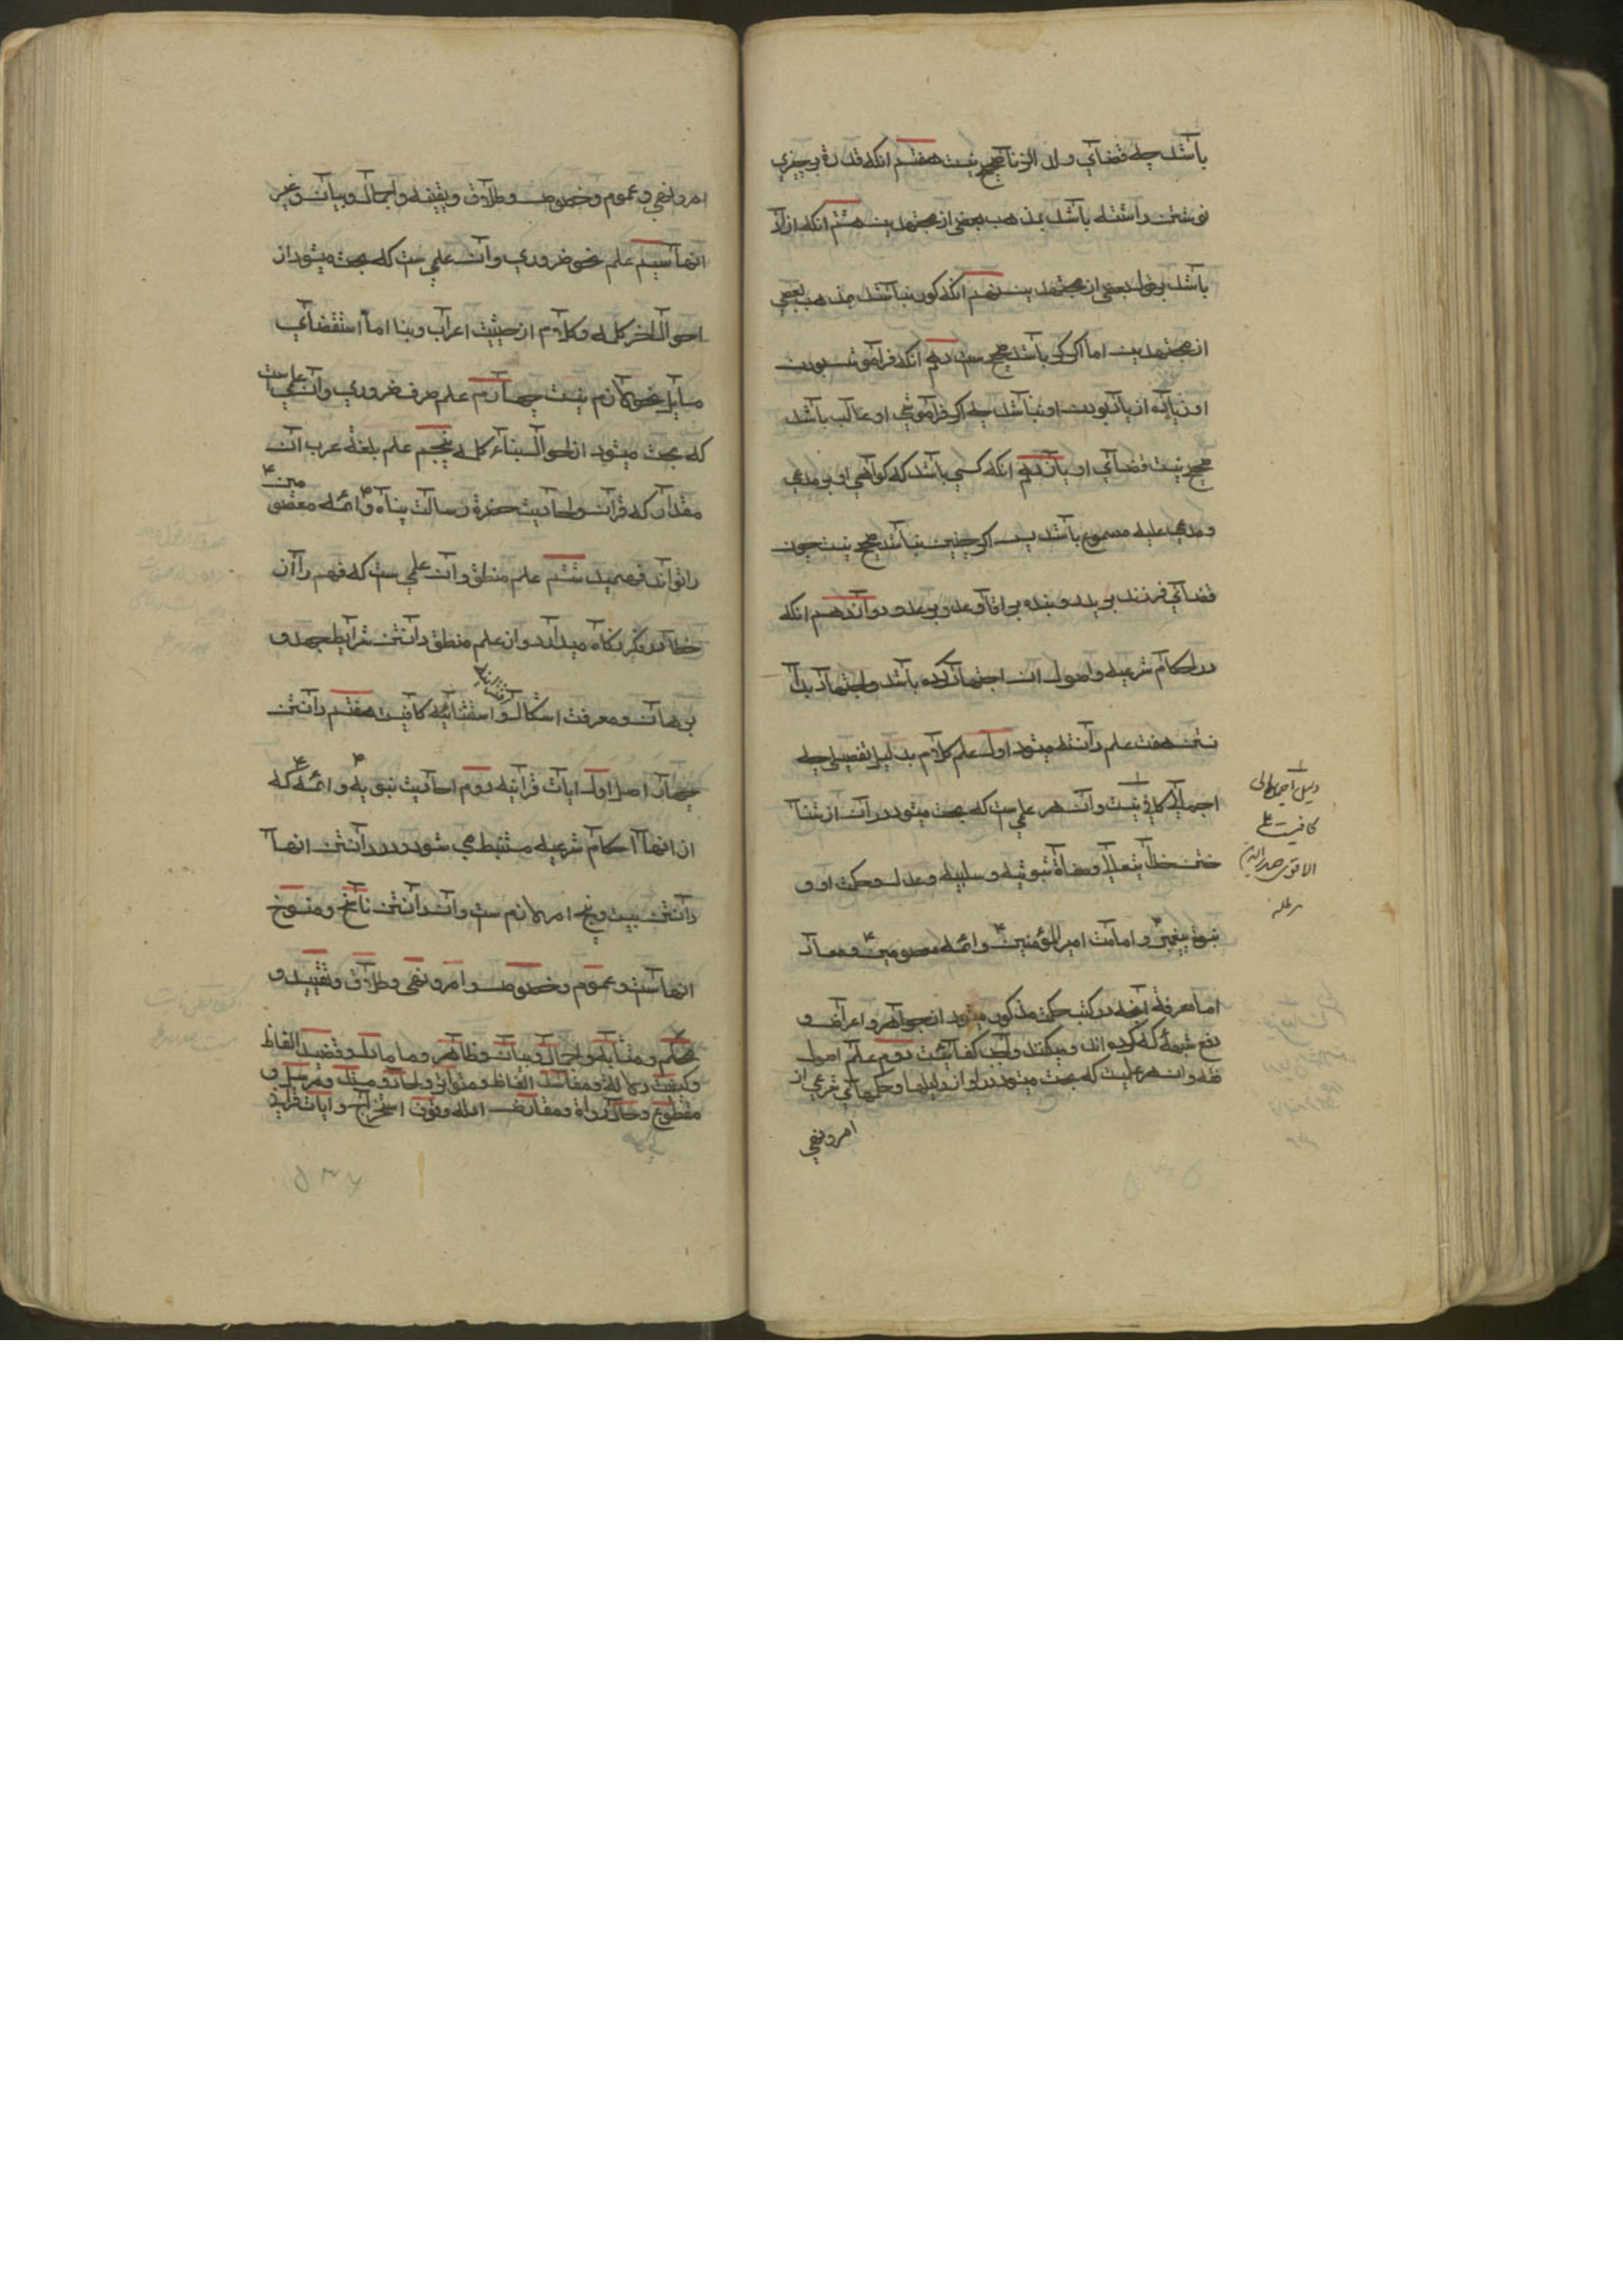 باشد چه قضای ولد الزنا صحیح نیست هفتم انکه قدرة بر چیزی
نوشتن داشته باشد بمذهب بعضی از مجتهدین هشتم انکه ازاد
باشد بقول بعضی از مجتهدین نهم انکه کور نباشد بمذهب بعضی
از مجتهدین اما اکر کر باشد صحیح ست دهم انکه فراموش بودن
او زیاده از یاد بودن او نباشد چه اکر فراموشی او غالب باشد
صحیح نیست قضای او یازدهم انکه کسی باشد که کواهی او بر مدعی
و مدعی علیه مسموع باشد پس اکر چنین نباشد صحیح نیست چون
قضای فرزند بر پدر و بنده بر اقا و عدو بر عدو دوازدهم انکه
در احکام شرعیه و اصول ان اجتهاد کرده باشد و اجتهاد بدا
نستن هفت علم دانسته میشود اول علم کلام بدلیل تفصیلی چه
اجمالی کافی نیست وان هر علمی ست که بحث میشود در ان از شنا
ختن خدایتعالی و صفاة ثبوتیه و سلبیه و عدل و حکمت او و
نبوة پیغمبر و امامت امیر المؤمنین و ائمه معصومین و معاد
اما معرفة انچه در کتب حکمت مذکور میشود از جواهر و اعراض و
دفع شبهه که کرده اند و میکنند واجب کفائیست دوم علم اصول
فقه وان هر علمیست که بحث میشود در او از دلیلها و حکمهای شرعی از
امر و نهی
دلیل اجمالی
کافیست علی
الاقوی صدر الدین
مد ظله
امر و نهی و عموم و خصوص و اطلاق و تقیید و اجمال و بیان و غیر
انها سیم علم نحو ضروری وان علمی ست که بحث میشود از
احوال اخر کلمه و کلام از حیثیت اعراب و بنا اما استقضای
مسایل نحو لازم نیست چهارم علم صرف ضروری وان علم است
که بحث میشود از احوال بناء کلمه پنجم علم بلغة عرب ان
مقدار که قران و احادیث حضرة رسالت پناه و ائمه معصومین
را تواند فهمید ششم علم منطق وان علمی ست که فهم را از
خطا در فکر نکاه میدارد و از علم منطق دانستن شرایط حد و
برهان و معرفت اشکال اقترانیه و استثنائیه کافیست هفتم دانستن
چهار اصل اول ایات قرانیه دوم احادیث نبویه و ائمه که
از انها احکام شرعیه مستنبط می شود و در دانستن انها
دانستن بیست و پنج امر لازم ست وان دانستن ناسخ و منسوخ
انهاست و عموم و خصوص و امر و نهی و اطلاق و تقیید و
محکم و متشابه و اجمال و بیان و ظاهر و ما مادل و قضیه الفاظ
و کیفیت دلالة و مقاصد الفاظ و متواتر و احاد و مسند و مرسل و
مقطوع و حال رواة و تعارض ادله و قوت استخراج و ایات قرانیه